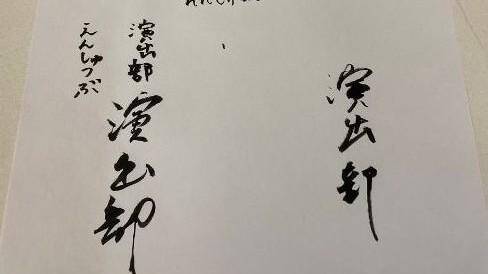 演出部
演出部
演出部
えんしゅつぶ